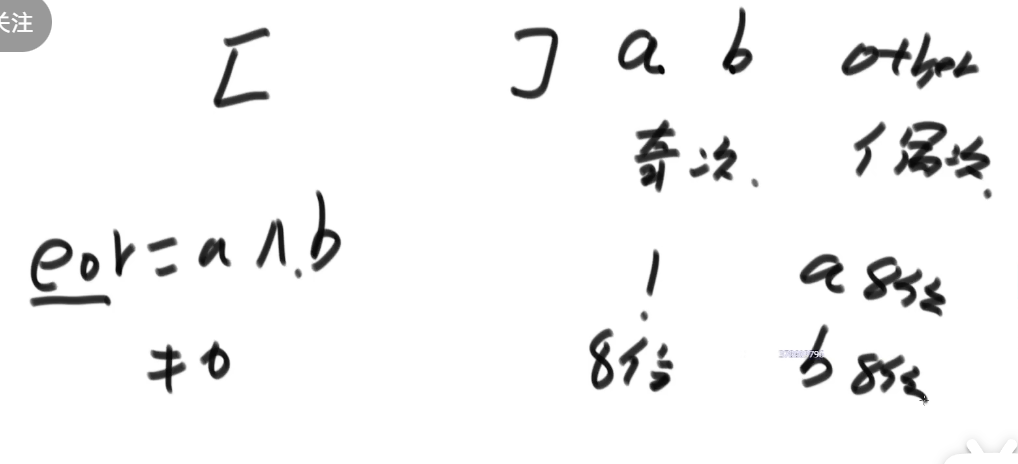 关注
[ ] a b other
奇次. 偶次.
eor = a ^ b
!
a 8位
≠ 0
8位
b 8位